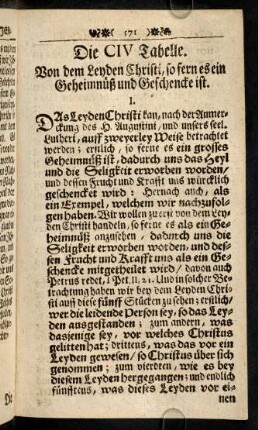 ( 171 )
Die CIV Tabelle.
Von dem Leyden Christi, so fern es ein
Geheimnüß und Geschencke ist.
I.
DAs Leyden Christi kan, nach der Anmer-
ckung des H. Augustini, und unsers seel.
Lutheri, auff zweyerley Weise betrachtet
werden; erstlich, so ferne es ein grosses
Geheimnüß ist, dadurch uns das Heyl
und die Seligkeit erworben worden,
und dessen Frucht und Krafft uns würcklich
geschencket wird: Hernach auch, als
ein Exempel, welchem wir nachzufol-
gen haben. Wir wollen zuerst von dem Ley-
den Christi handeln, so ferne es als ein Ge-
heimnüß anzusehen, dadurch uns die
Seligkeit erworben worden, und des-
sen Frucht und Krafft uns als ein Ge-
schencke mitgetheilet wird / davon auch
Petrus redet, 1 Pet. II. 21. Und in solcher Be-
trachtung haben wir bey dem Leyden Chri-
sti auff diese fünff Stücken zu sehen: erstlich/
wer die leidende Person sey, so das Ley-
den ausgestanden; zum andern, was
dasjenige sey, vor welches Christus
gelitten hat; drittens, was das vor ein
Leyden gewesen/ so Christus über sich
genommen; zum vierdten, wie es bey
diesem Leyden hergegangen; und endlich
fünfftens, was dieses Leyden vor ei-
nen
Die